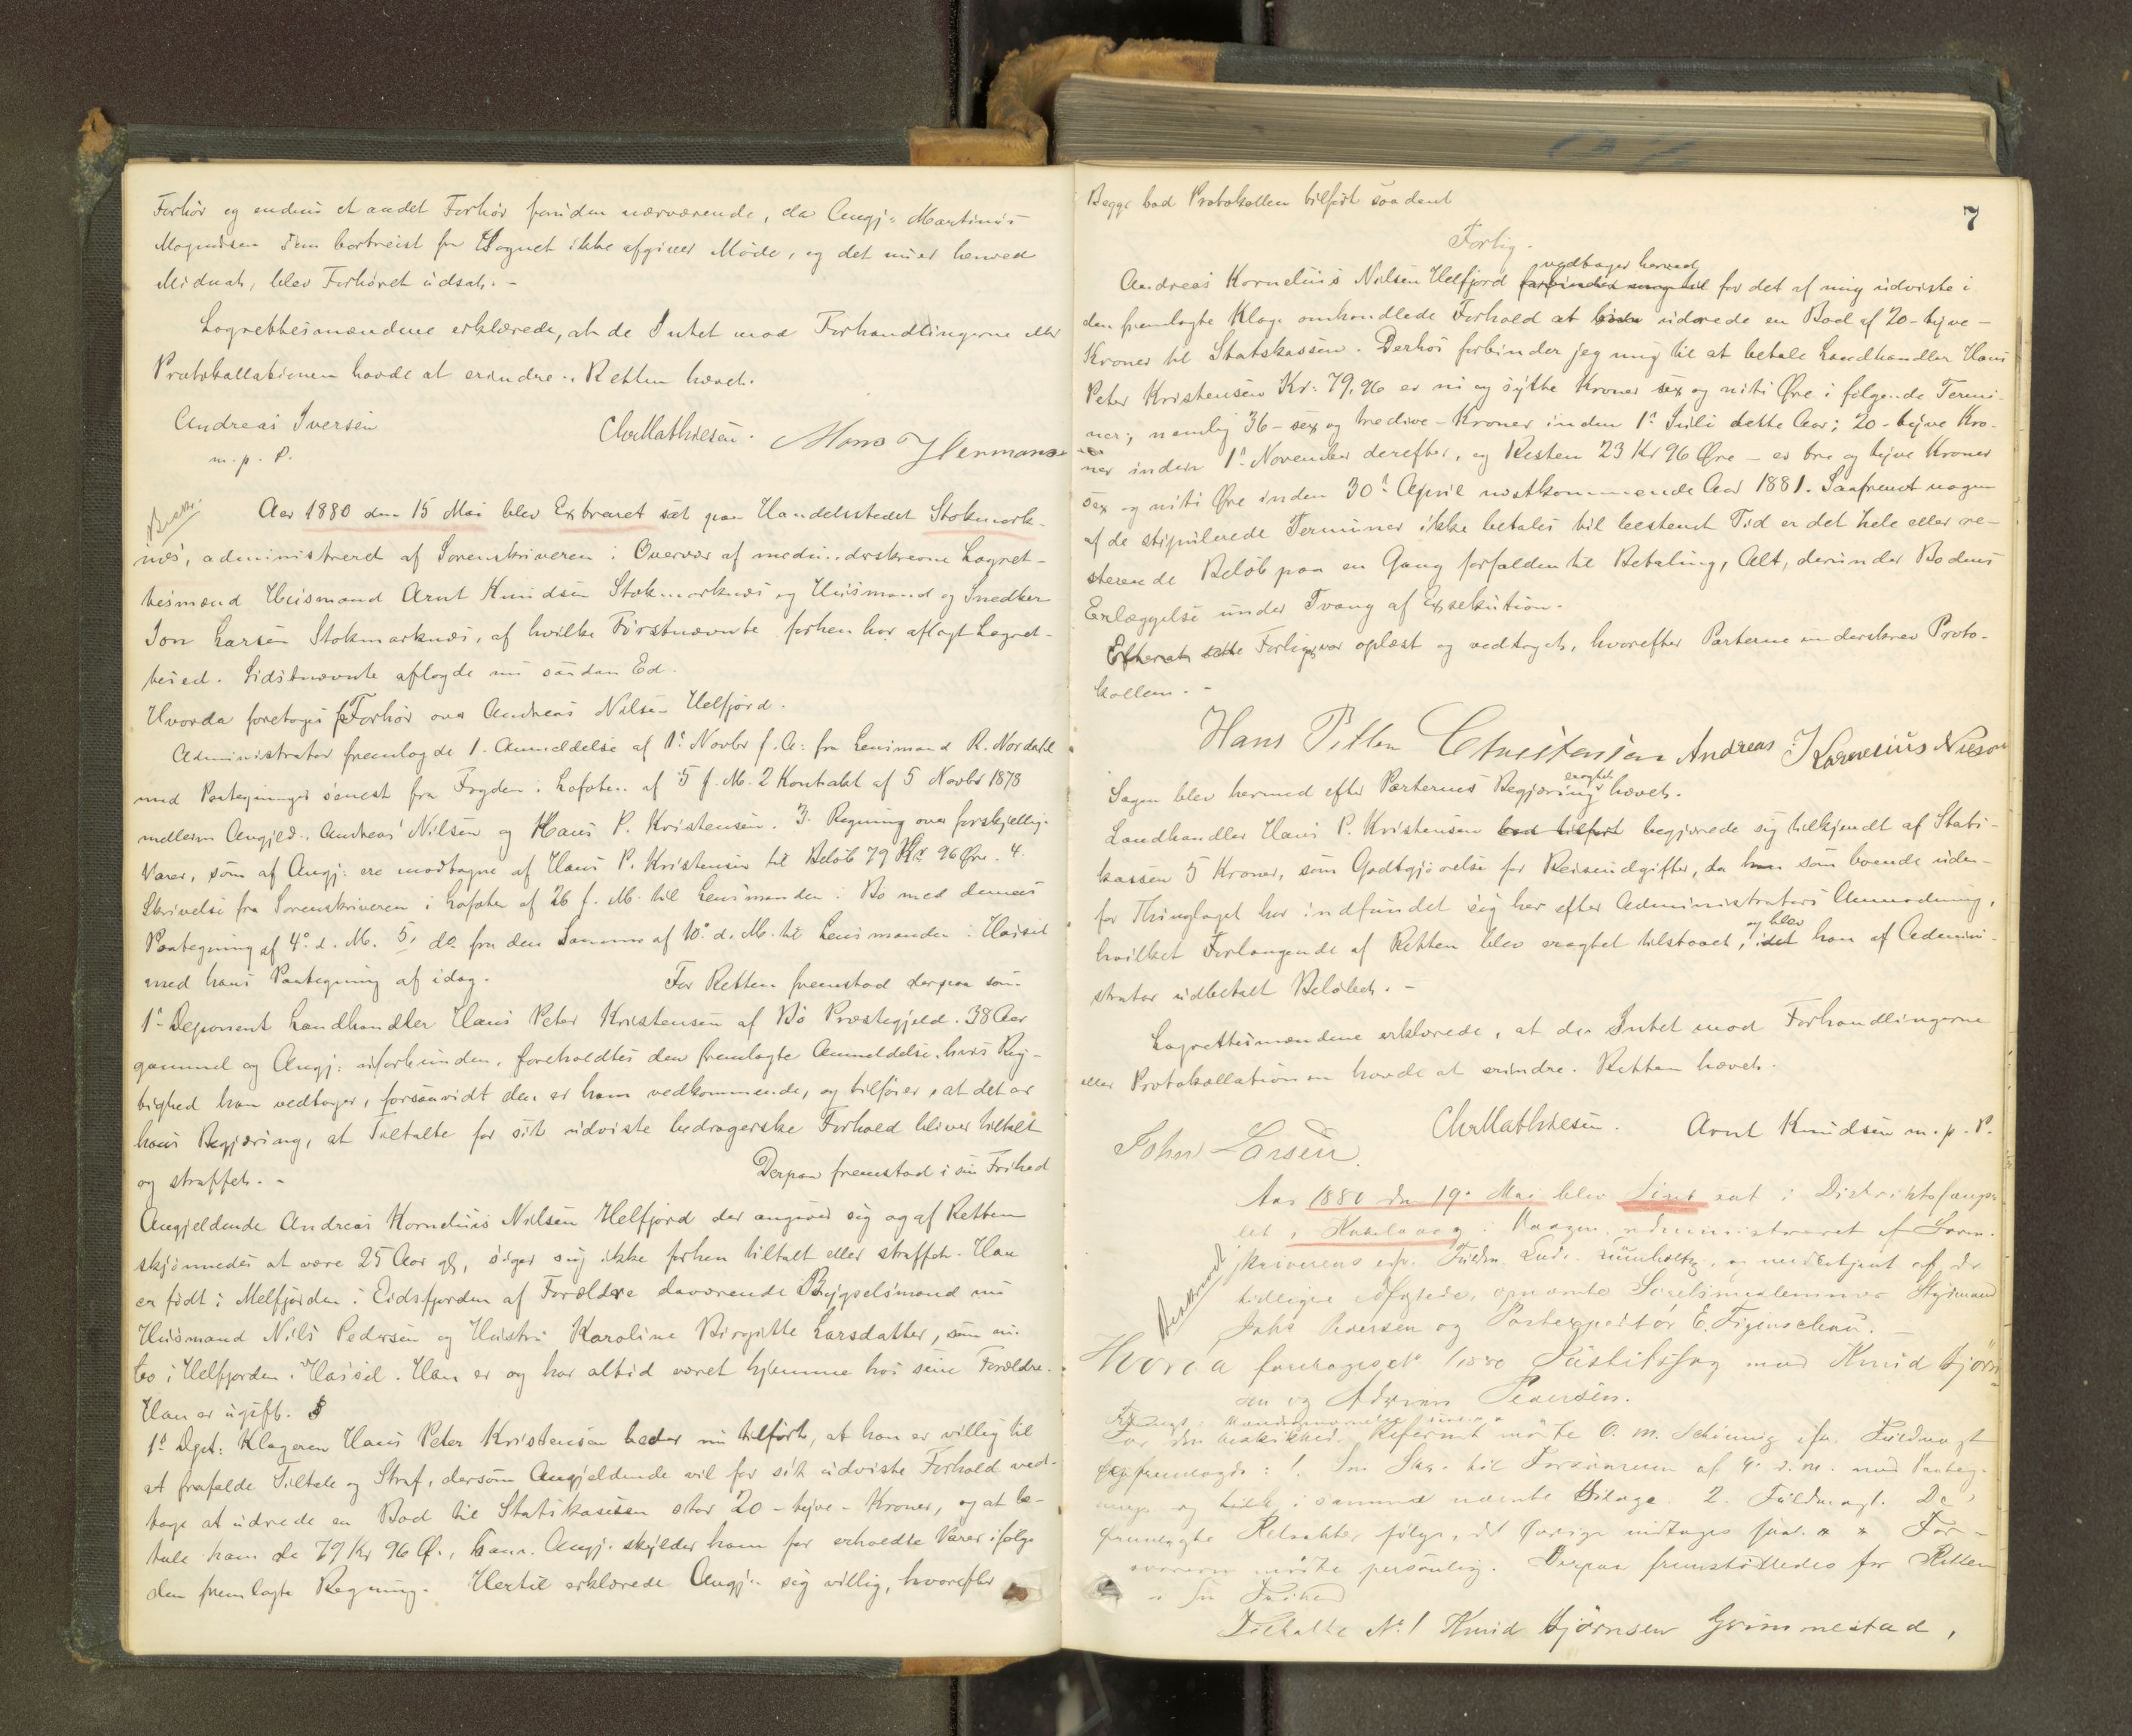 Forhør og endnu et andet Forhør foruden nærværende, da Angj: Martinus
Magnussen som bortreist fra Sognet ikke afgiver Møde, og det nu er henved
Midnat, blev Forhøret udsat. -
Lagrettesmændene erklærede, at de Intet mod Forhandlingerne eller
Protokollationen havde at erindre. Retten hævet.
Andreas Iversen
m. p. P.
Chr Mathiesen. Mons Hermans
Aar 1880 den 15 Mai blev Extraret sat paa Handelsstedet Stokmark-
næs, administreret af Sorenskriveren i Overvær af medunderskrevne Lagret-
tesmænd Husmand Arnt Knudsen Stokmarknæs og Husmand og Snedker
Jon Larsen Stokmarknæs, af hvilke Førstnævnte forhen har aflagt Lagret-
tesed. Sidstnævnte aflagde nu saadan Ed.
Hvorda foretoges Forhør over Andreas Nilsen Helfjord.
Administrator fremlagde 1. Anmeldelse af 1ste Novbr f. A: fra Lensmand R. Nordahl
med Paategninger senest fra Fogden i Lofoten af 5 f. M. 2 Kontrakt af 5 Novbr 1878
mellem Angjed. Andreas Nilsen og Hans P. Kristensen. 3. Regning over forskjellige
Varer, som af Angj: ere modtagne af Hans P. Kristensen til Beløb 79 Kr 96 Øre. 4.
Skrivelse fra Sorenskriveren i Lofoten af 26 f. M. til Lensmanden i Bø med dennes
Paategning af 4de d. M. 5, do fra den Samme af 10de d. M. til Lensmanden i Hassel
med hans Paategning af idag. For Retten fremstod derpaa som
1ste Deponent Landhandler Hans Peter Kristensen af Bø Præstegjeld. 38 Aar
gammel og Angj: uforbunden, foreholdtes den fremlagte Anmeldelse, hvis Rig-
tighed han vedtager, forsaavidt den er ham vedkommende, og tilføier, at det er
hans Begjæring, at Tiltalte for sit udviste bedragerske Forhold bliver tiltalt
og straffet. - Derpaa fremstod i sin Frihed
Angjeldende Andreas Kornelius Nilsen Helfjord der angives sig og af Retten
skjønnedes at være 25 Aar gl, siger sig ikke forhen tiltalt eller straffet. Han
er født i Melfjorden i Eidsfjorden af Forældre daværende Bygselsmand nu
Husmand Nils Pedersen og Hustru Karoline Birgitte Larsdatter, som nu
bo i Helfjorden i Hassel. Han er og har altid været hjemme hos sine Forældre.
Han er ugift.
1ste Dpt: Klageren Hans Peter Kristensen beder nu tilført, at han er villig til
at frafalde Tiltale og Straf, dersom Angjeldende vil for sit udviste Forhold ved-
tage at udrede en Bod til Statskassen stor 20 - tyve - Kroner, og at be-
tale ham de 79 Kr 96 Ø., som Angj. skylder ham for erholdte Varer ifølge
den fremlagte Regning. Hertil erklærede Angj: sig villig, hvorefter
7
Begge bad Protokollen tilført saadant
Forlig.
vedtager herved
Andreas Kornelius Nilsen Helfjord forbinder mig til for det af mig udviste i
den fremlagte Klage omhandlede Forhold at udrede en Bod af 20 - tyve -
Kroner til Statskassen. Derhos forbinder jeg mig til at betale Landhandler Hans
Peter Kristensen Kr: 79,96 er ni og sytti Kroner sex og niti Øre i følgende Termi-
ner; nemlig 36 - sex og tredive - Kroner inden 1ste Juli dette Aar; 20 - tyve Kro-
ner inden 1ste November derefter, og Resten 23 Kr 96 Øre - er tre og tyve Kroner
sex og niti Øre inden 30te April næstkommende Aar 1881. Saafremt nogen
af de stipulerede Terminer ikke betales til bestemt Tid er det hele eller re-
sterende Beløb paa en Gang forfalden til Betaling, Alt, derunder Bodens
Erlæggelse under Tvang af Exsekution.
Efterat dette Forlig var oplæst og vedtaget, hvorefter Parterne underskrev Proto-
kollen. -
Hans Petter Christensen Andreas Kornelius Nilson
eragtet
Sagen blev hermed efter Parternes Begjæring hævet.
Landhandler Hans P. Kristensen bad tilført begjærede sig tilkjendt af Stats-
kassen 5 Kroner, som Godtgjørelse for Reiseudgifter, da han som boende uden-
for Thinglaget har indfundet sig her efter Administrators Anmodning,
og blev
hvilket Forlangende af Retten blev eragtet tilstaaet, idet han af Admini-
strator udbetalt Beløbet. -
Lagrettesmændene erklærede, at de Intet mod Forhandlingerne
eller Protokollationen havde at erindre. Retten hævet.
Chr Mathiesen. Arnt Knudsen m. p. P.
John Larsen.
Aar 1880 den 19de Mai blev sat i Distriktsfængs-
let i Kabelvaag i Vaagen, administreret af Soren-
skriverens og medbetjent af de
tidligere opnævnte Styrmand
Pedersen og Postexpeditør E. Figenschau.
Hvorda foretoges No 1/1880 Justitssag mod Knud Bjørn-
sen og Pedersen.
For den beskikkede Referent mødte O. M. Schiønning ifø. Fuldmagt
og fremlagde: 1. af 4. d. M. med Paateg-
ninger og i samme nævnte Bilage. 2. Fuldmagt. De
fremlagte Retsakter følge, det øvrige indtages saal. * * For-
svareren mødte personlig. Derpaa fremstilledes for Retten
i sin Frihed
Tiltalte No 1 Knud Bjørnsen Grimmestad,